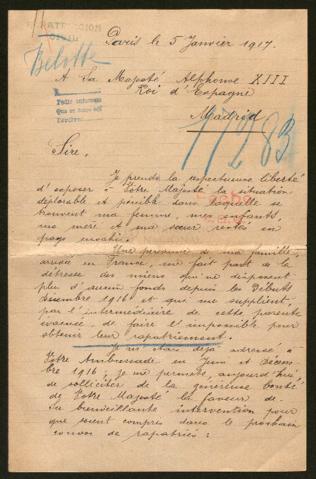 Paris le 5 Janvier 1917.
Belotte
A Sa Majesté Alphonse XIII
Roi d'Espagne
Madrid
Sire,
Je prends la respectueuse liberté
d'exposer à Votre Majesté la situation
déplorable et pénible dans laquelle se
trouvent ma femme, mes enfants,
ma mère et ma sœur restés en
pays envahi.
Une personne de ma famille,
arrivée en France, me fait part de la
détresse des miens qui ne disposent
plus d'aucun fonds depuis les débuts
décembre 1916 et qui me supplient,
par l'intermédiaire de cette parente
évacuée, de faire l'impossible pour
obtenir leur rapatriement.
Je me étais déjà adressé à
Votre Ambassade en Juin et Décem-
bre 1916; je me permets, aujourd'hui
de solliciter de la généreuse bonté
de Votre Majesté la faveur de
Sa bienveillante intervention pour
que soient compris dans le prochain
convoi de rapatriés :